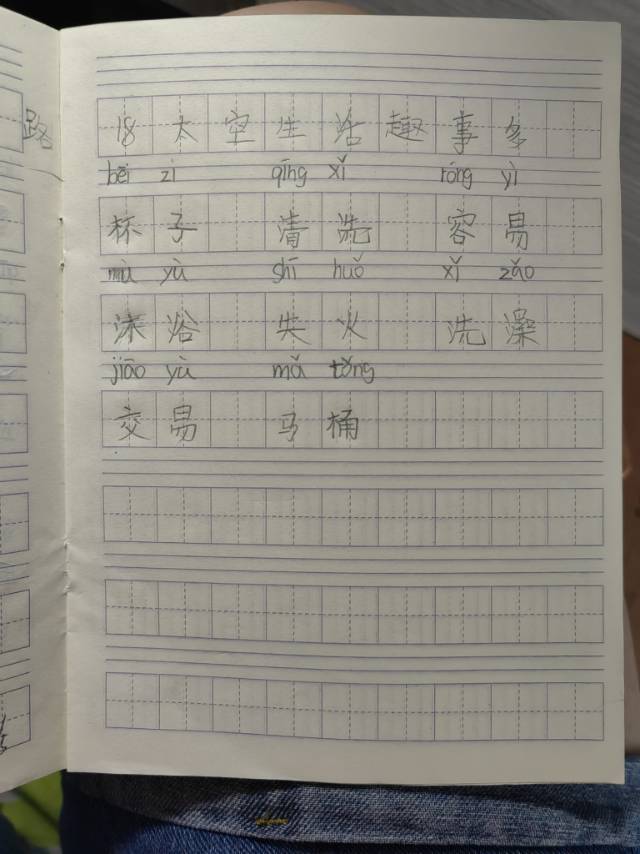 路
18太空生活趣事多
bēi zi qīng xǐ róng yì
杯子 清洗 容易
mù yù shī huǒ xǐ zǎo
沐浴 失火 洗澡
jiāo yù mǎ tǒng
交易 马桶